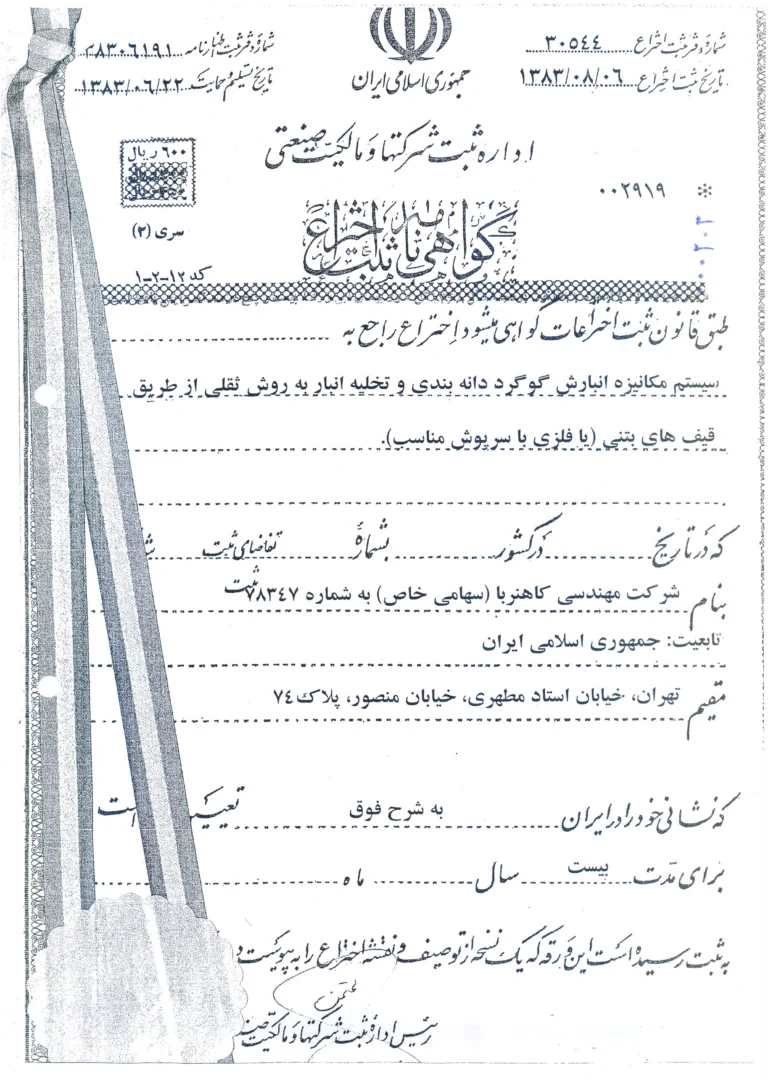 شماره دفتر ثبت اختراع ۳۰۵۴۴
تاریخ ثبت اختراع ۱۳۸۳/۰۸/۰۶
جمهوری اسلامی ایران
شماره دفتر ثبت اظهارنامه ۳۸۳۰۶۱۹۱
تاریخ تسلیم و حمایت ۱۳۸۳/۰۶/۲۲
اداره ثبت شرکتها و مالکیت صنعتی
۶۰۰ ریال
۰۰۲۹۱۹ *
گواهی نامه ثبت اختراع
سری (۲)
کد ۱۲-۲-۱
طبق قانون ثبت اختراعات گواهی میشود اختراع راجع به
سیستم مکانیزه انبارش گوگرد دانه بندی و تخلیه انبار به روش ثقلی از طریق
قیف های بتنی (یا فلزی با سرپوش مناسب).
که در تاریخ در کشور بشماره تقاضای ثبت
بنام شرکت مهندسی کاهنربا (سهامی خاص) به شماره ثبت ۷۸۳۴۷
تابعیت: جمهوری اسلامی ایران
مقیم تهران، خیابان استاد مطهری، خیابان منصور، پلاک ۷۴
که نشانی خود را در ایران به شرح فوق تعیین است
برای مدت بیست سال ماه
به ثبت رسیده است این ورقه که یک نسخه از توصیف و نقشه اختراع را به پیوست
رئیس اداره ثبت شرکتها و مالکیت